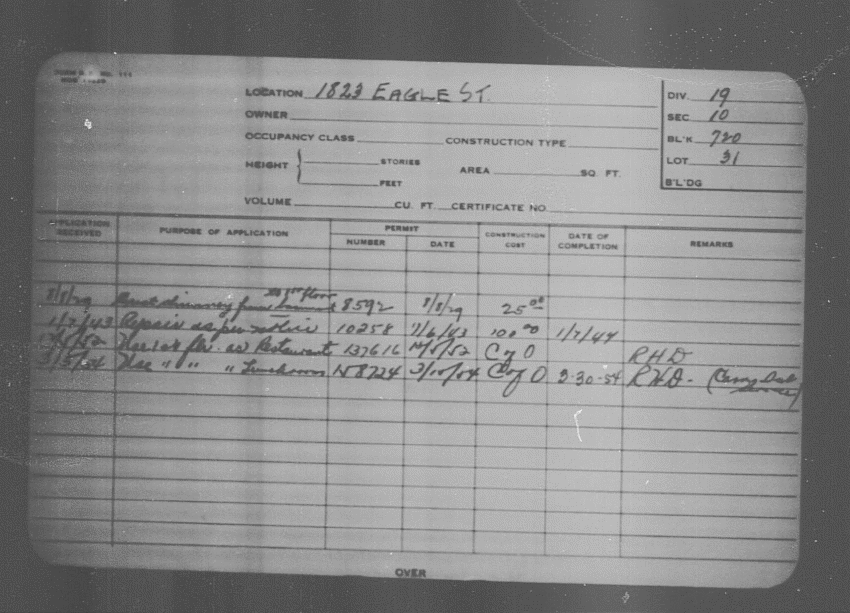 LOCATION 1823 EAGLE ST.
DIV. 19
OWNER
SEC 10
OCCUPANCY CLASS CONSTRUCTION TYPE
BL'K 720
HEIGHT STORIES
FEET
AREA SQ. FT.
LOT 31
B'L'DG
VOLUME CU. FT. CERTIFICATE NO.
APPLICATION RECEIVED PURPOSE OF APPLICATION PERMIT NUMBER DATE CONSTRUCTION COST DATE OF COMPLETION REMARKS
to 1st floor
8/8/29 chimney from 8592 8/8/29 25 00
1/7/43 Repair as per notice 10258 7/6/43 100 00 1/7/44
Use 1st flr. as Restaurant 137616 C of O RHD
Use " " " Lunchroom 158724 C of O 3-30-54 RHD-
OVER